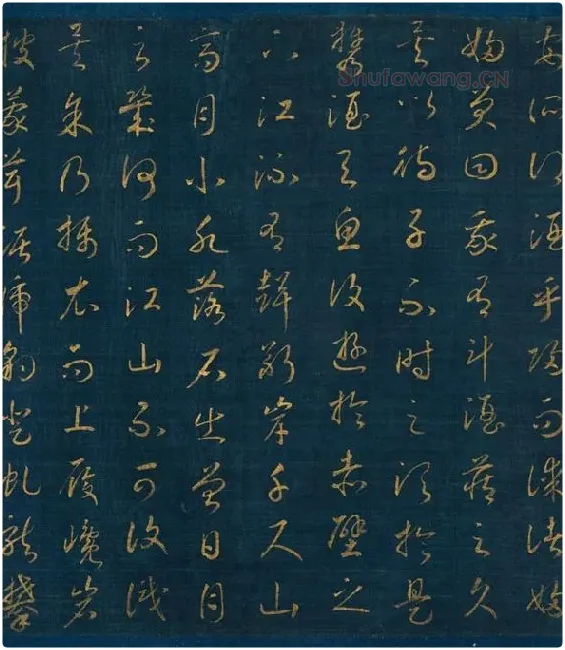 安所得酒乎歸而謀諸婦
婦曰我有斗酒藏之久
矣以待子不時之須於是
攜酒與魚復遊於赤壁之
下江流有聲斷岸千尺山
高月小水落石出曾日月
之幾何而江山不可復識
矣余乃攝衣而上履巉岩
披蒙茸踞虎豹登虬龍攀
Shufawang.CN